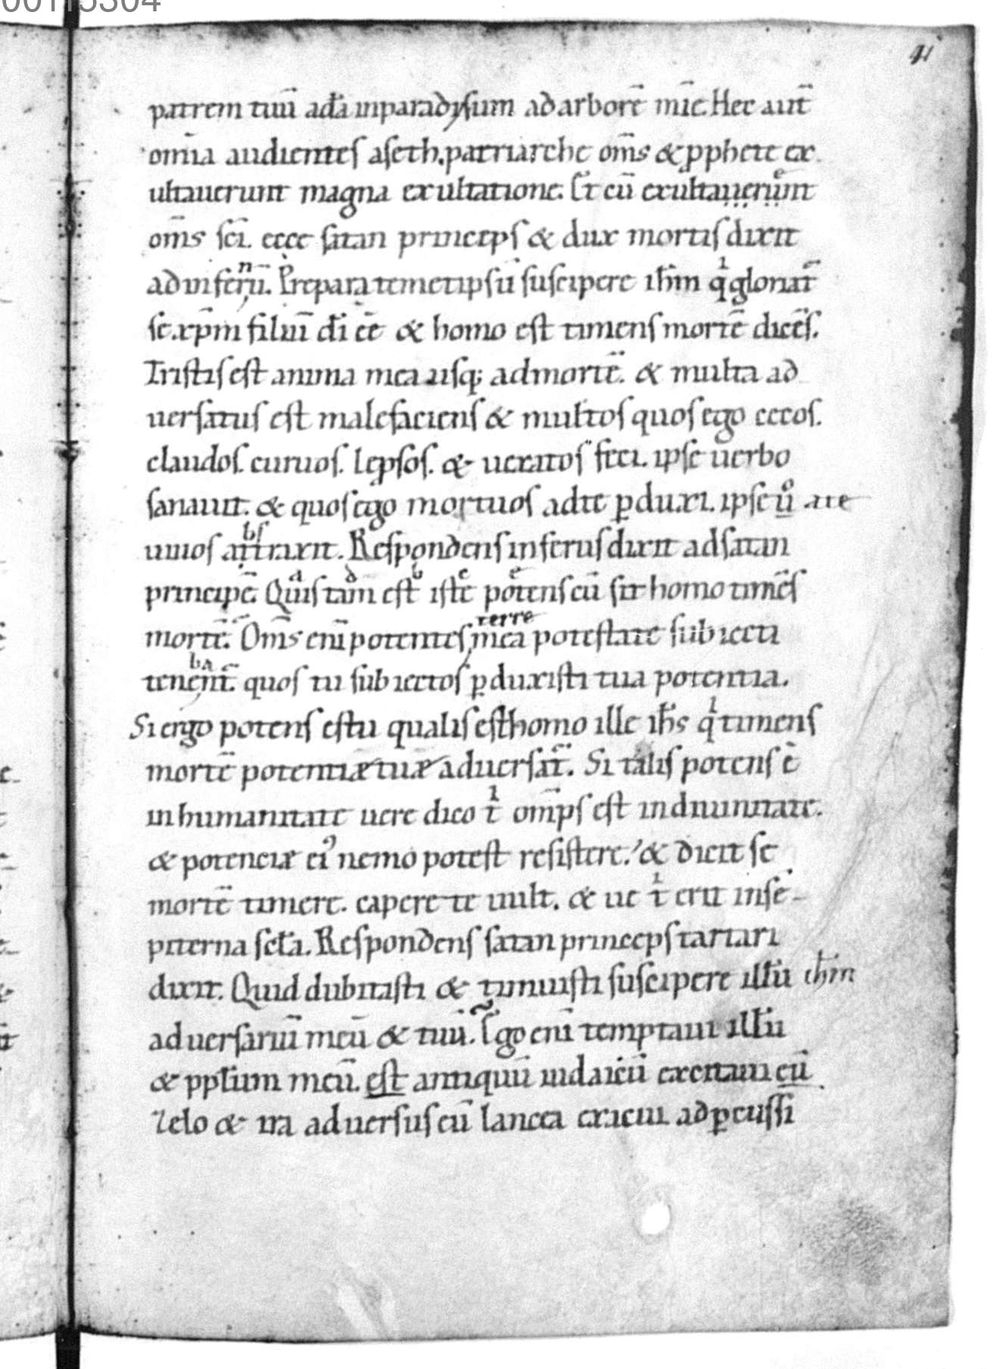 41
patrem tuū adā inparadysum ad arborē mīe. Hec aut̄
om̄ia audientes aseth. patriarche om̄s & p̱phete ex
ultauerunt magna exultatione. Et cū exultauerunt
om̄s sc̄i. ecce satan princeps & dux mortis dixit
ad inferū. Prepara temetipsū suscipere ih̄m qⁱ gloriat̄
se xp̄m filiū dī eē & homo est timens mortē dicēs.
Tristis est anima mea usq; ad mortē. & multa ad
uersatus est malefaciens & multos quos ego cecos.
claudos. curuos. lep̱sos. & uexatos feci. ipse uerbo
sanauit. & quos ego mortuos ad te p̱duxi. ipse ů a te
uiuos attraxit. Respondens inferus dixit ad satan
principē. Quis tam est iste potens cū sit homo timēs
mortē. Om̄s enī potentes terre mea potestate subiecti
tenent̄. quos tu subiectos p̱duxisti tua potentia.
Si ergo potens es tu qualis est homo ille ih̄s qⁱ timens
mortē potentiæ tuæ aduersat̄. Si talis potens ē
in humanitate uere dico tⁱ om̄ps est in diuinitate.
& potencie ei᾽ nemo potest resistere. & dicit se
mortē timere. capere te uult. & ue tⁱ erit in sē
piterna scl̄a. Respondens satan princeps tartari
dixit. Quid dubitasti & timuisti suscipere illū ih̄m
aduersariū meū & tuū. Ego enī temptaui illū
& ppl̄um meū. est antiquū iudaicū excitaui cū
zelo & ira aduersus eū lancea exacui ad p̱cussi